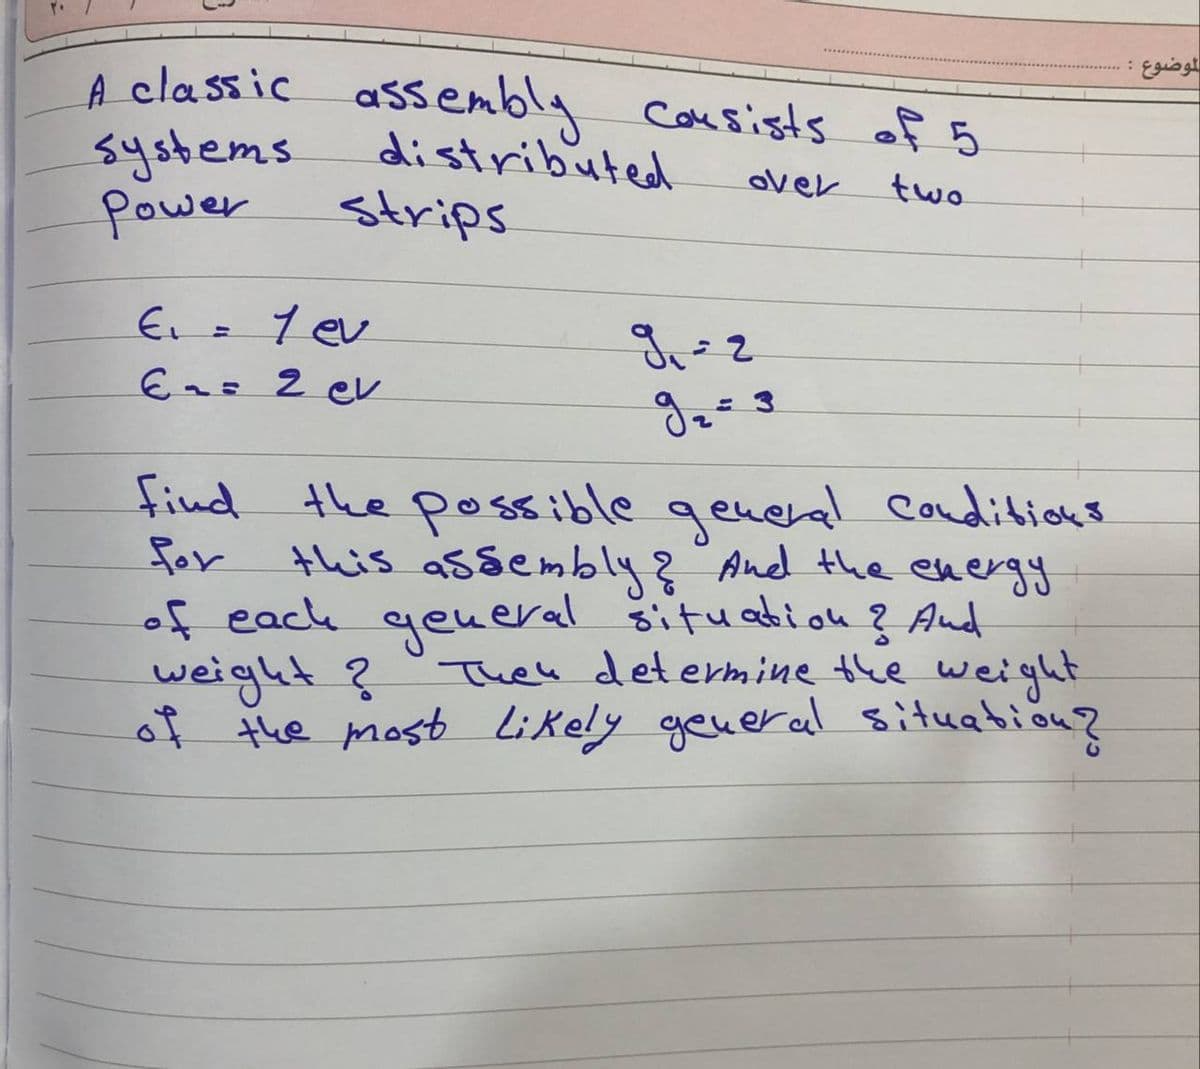 الموضوع :
A classic assembly consists of 5
systems distributed over two
Power strips
ϵ₁ = 1 ev g₁ = 2
ϵ₂ = 2 ev g₂ = 3
find the possible general conditions
for this assembly? And the energy
of each general situation? And
weight? Then determine the weight
of the most likely general situation?